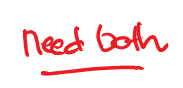 need both